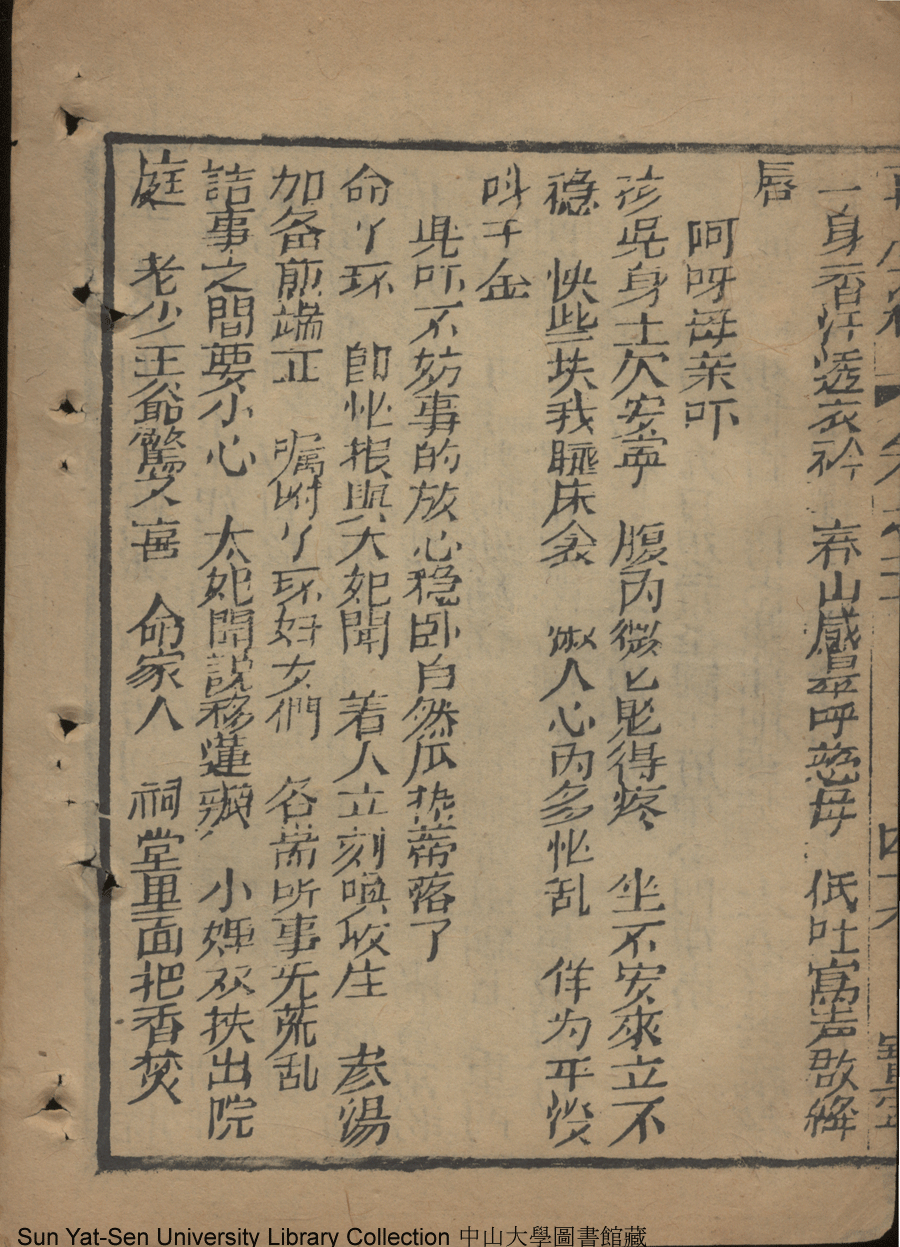 一身香汗透衣衿　春山感𥇦呼慈母　低吐寓声啟絳
唇
阿呀母亲吓
孩児身士欠安寧　腹内微匕𠒇得疼　坐不安來立不
穏　快些扶我𪾢床衾　㑳人心内多忙乱　佯为平
呌千金
児吓不妨事的放心稳卧自然瓜𤍠蒂落了
命丫环　即忙报與太妃聞　着人立刻唤收生　参湯
加备煎端正　嘱咐丫环妇女們　各需听事无荒乱
詰事之間要小心　太妃聞説移蓮瓣　小姪双扶出院
庭　老少王爺驚又喜　命家人　祠堂里面把香焚
Sun Yat-Sen University Library Collection 中山大學圖書館藏